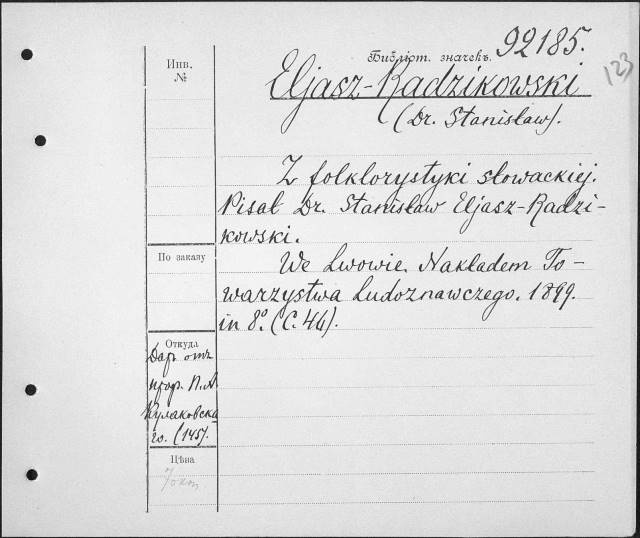 Библіот. значекъ. 92185.
123
Инв.
№
Eljasz-Radzikowski
(Dr. Stanisław).
Z folklorystyki słowackiej.
Pisał Dr. Stanisław Eljasz-Radzi-
kowski.
We Lwowie. Nakładem To-
warzystwa Ludoznawczego. 1899.
in 8º. (С. 44).
По заказу
Откуда
Даръ отъ
проф. П. А.
Кулаковска-
го. (145).
Цѣна